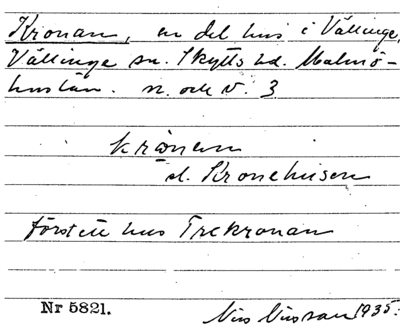 Kronan, en del hus i Vällinge,
Vällinge sn. Skytts hd. Malmö-
huslän. n. och v. 3
krånen
el. Kronehusen
först ett hus Trekronan
Nr 5821.
Nils Nilsson 1935.